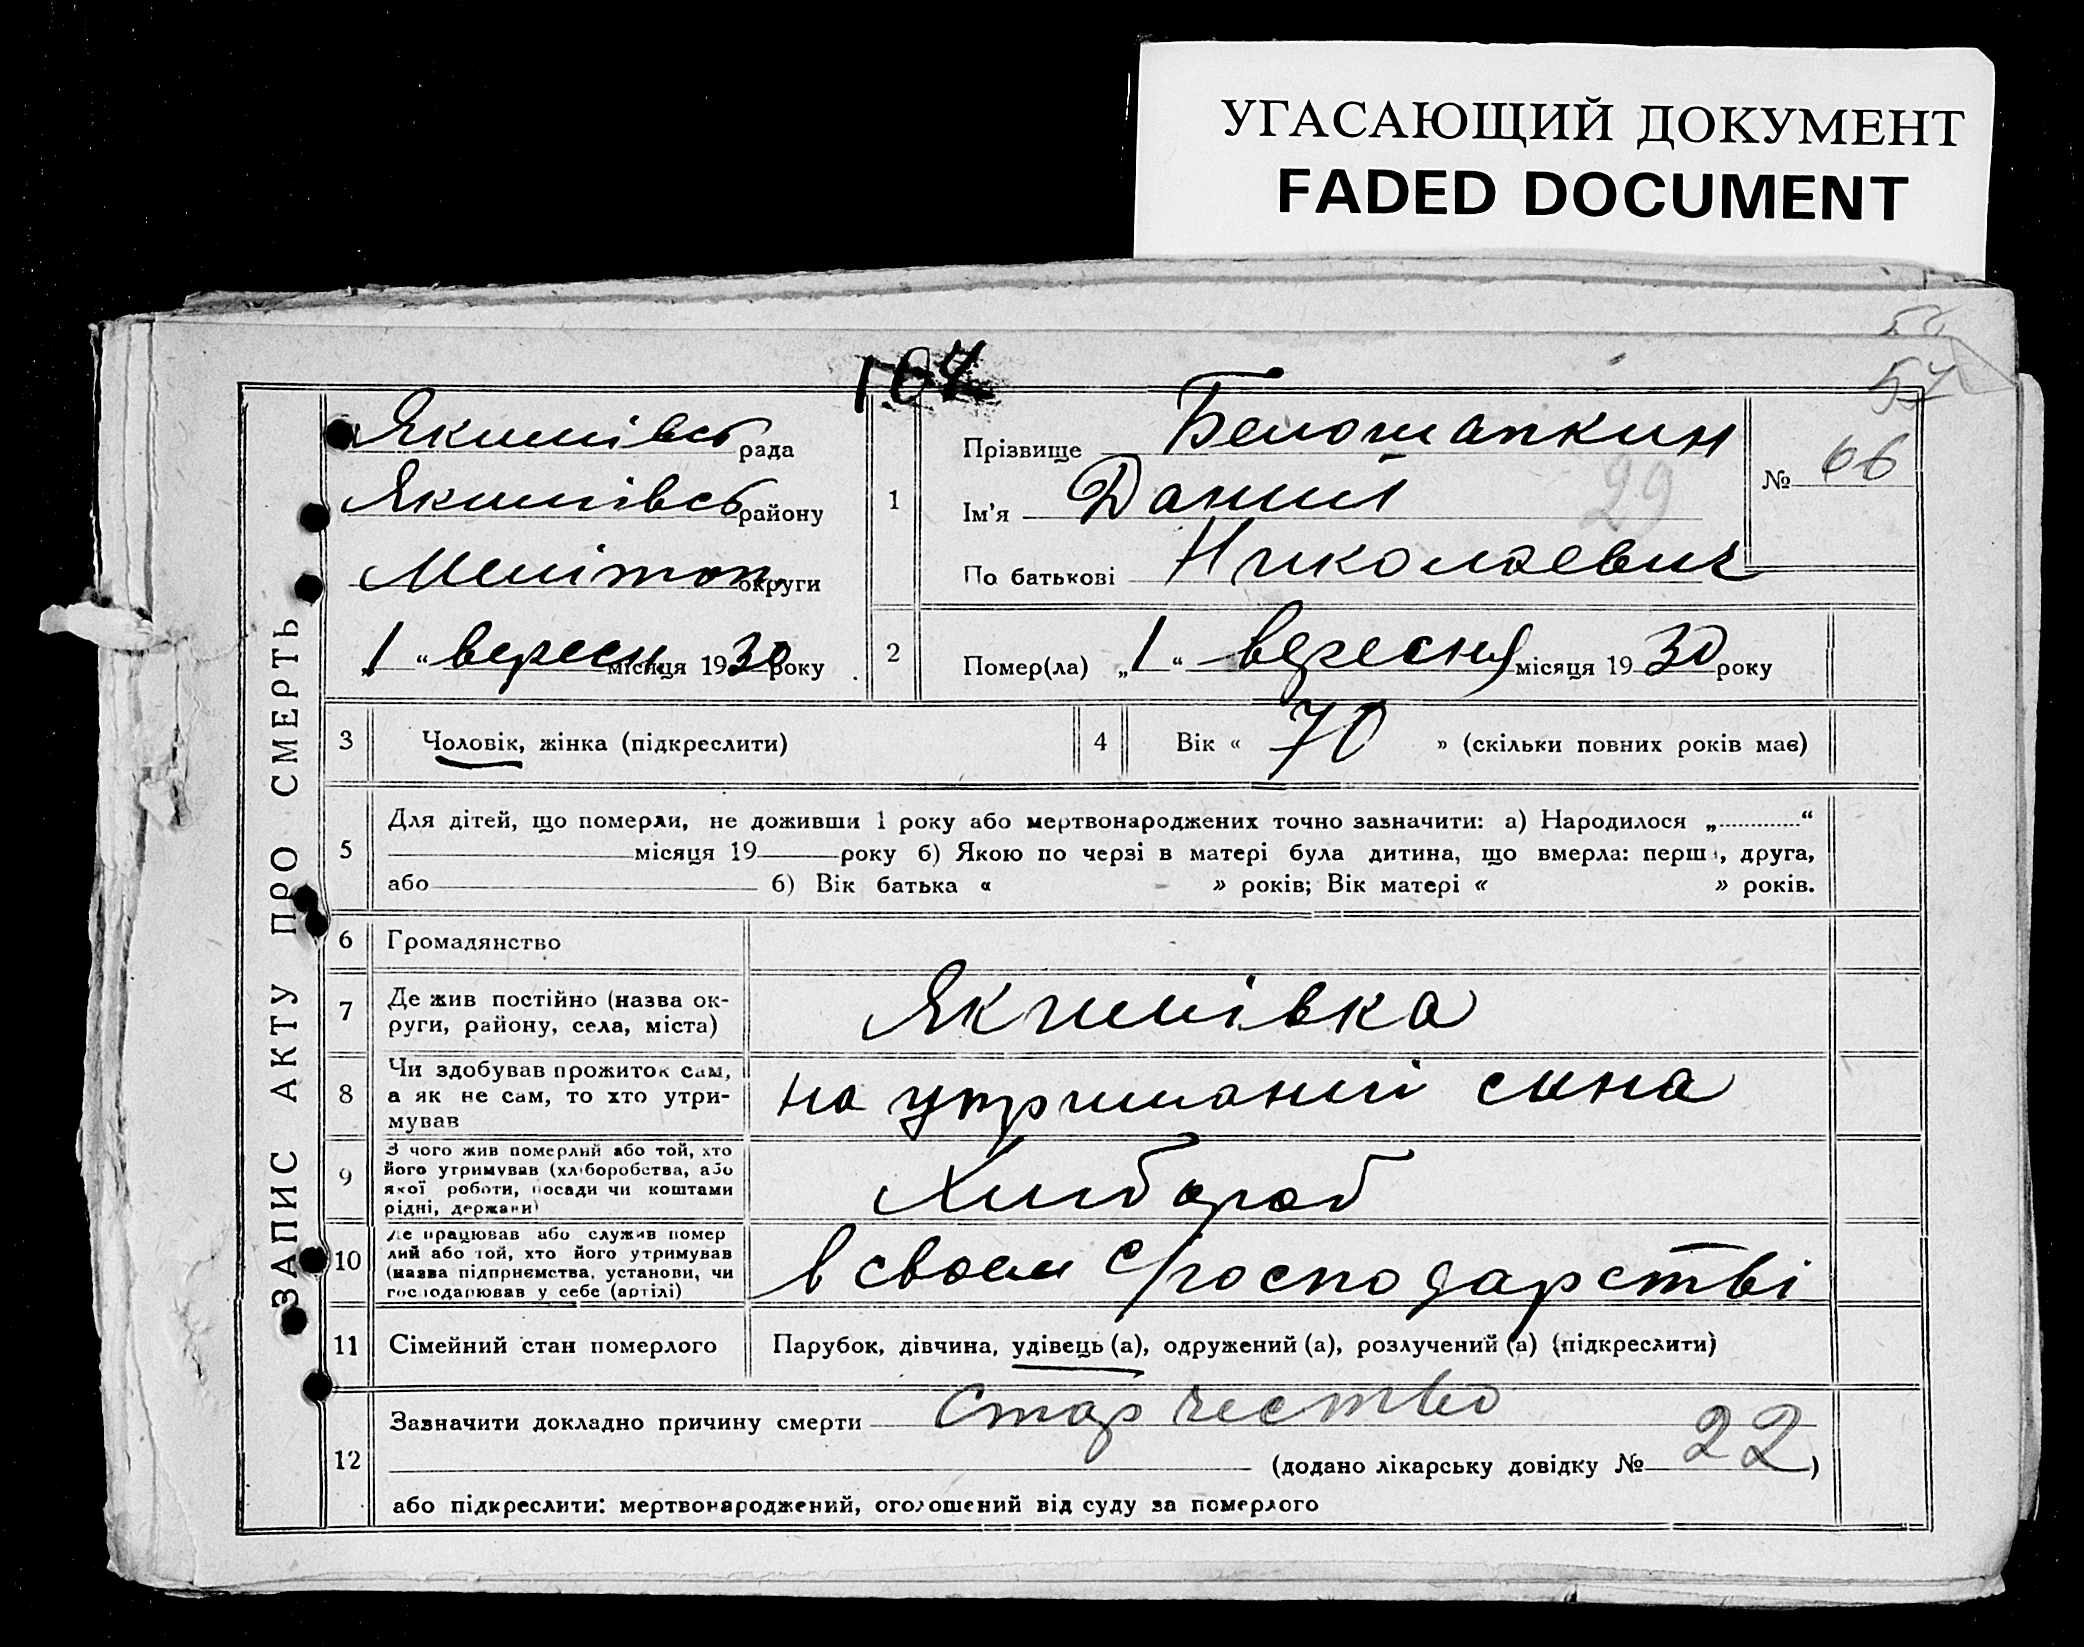 УГАСАЮЩИЙ ДОКУМЕНТ
FADED DOCUMENT
57
ЗАПИС АКТУ ПРО СМЕРТЬ
Якимівсь рада
Якимівсь району
Мелітоп. округи
„1“ вересн. місяця 1930 року
1
Прізвище Белошапкин
Ім'я Данііл
29
По батькові Николаевич
№ 66
2
Помер(ла) „1“ вересня місяця 1930 року
3
Чоловік, жінка (підкреслити)
4
Вік « 70 » (скільки повних років має)
5
Для дітей, що померли, не доживши 1 року або мертвонароджених точно зазначити: а) Народилося „............“
місяця 19 року б) Якою по черзі в матері була дитина, що вмерла: перша, друга,
або б) Вік батька « » років; Вік матері « » років.
6
Громадянство
7
Де жив постійно (назва ок-
руги, району, села, міста)
Якимівка
8
Чи здобував прожиток сам,
а як не сам, то хто утри-
мував
на утриманіі сина
9
З чого жив померлий або той, хто
його утримував (хліборобства, або
якої роботи, посади чи коштами
рідні, держави)
Хлібороб
10
Де працював або служив помер
лий або той, хто його утримував
(назва підприємства, установи, чи
господарював у себе (артілі)
в своем господарстві
11
Сімейний стан померлого
Парубок, дівчина, удівець (а), одружений (а), розлучений (а) (підкреслити)
12
Зазначити докладно причину смерти старчество
(додано лікарську довідку № 22)
або підкреслити: мертвонароджений, оголошений від суду за померлого